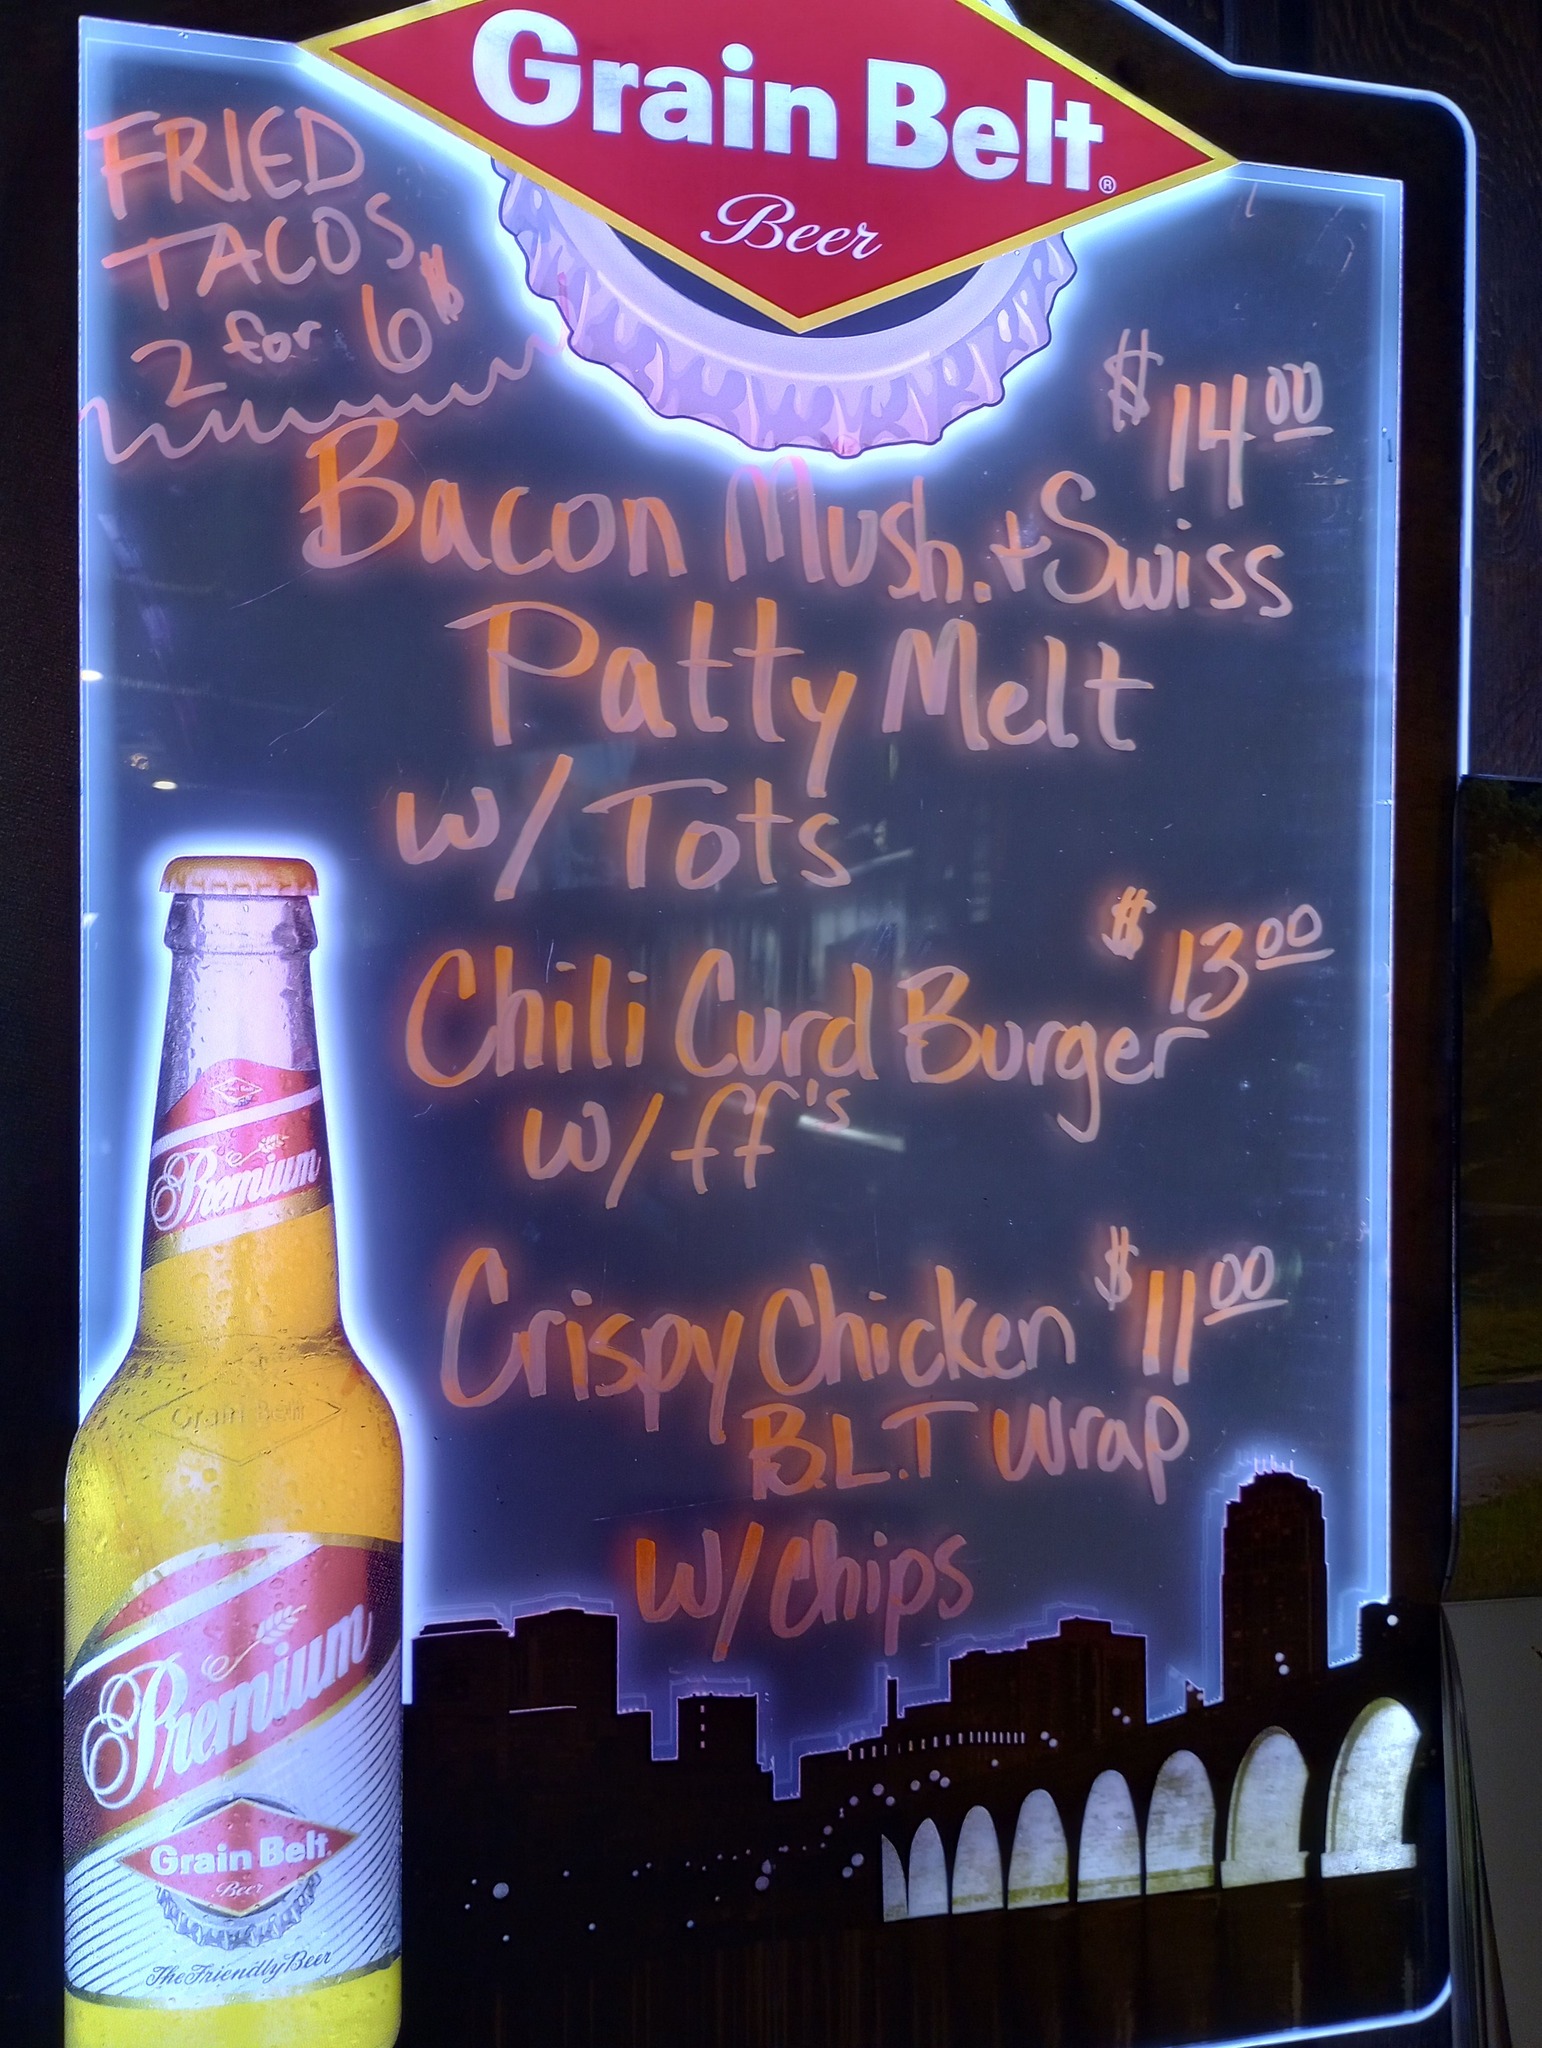 Grain Belt®
Beer
FRIED
TACOS
2 for 6$
$14.00
Bacon Mush. + Swiss
Patty Melt
w/ Tots
$13.00
Chili Curd Burger
w/ ff's
Crispy Chicken $11.00
B.L.T Wrap
w/ Chips
Premium
Grain Belt
Premium
Grain Belt.
Beer
The Friendly Beer